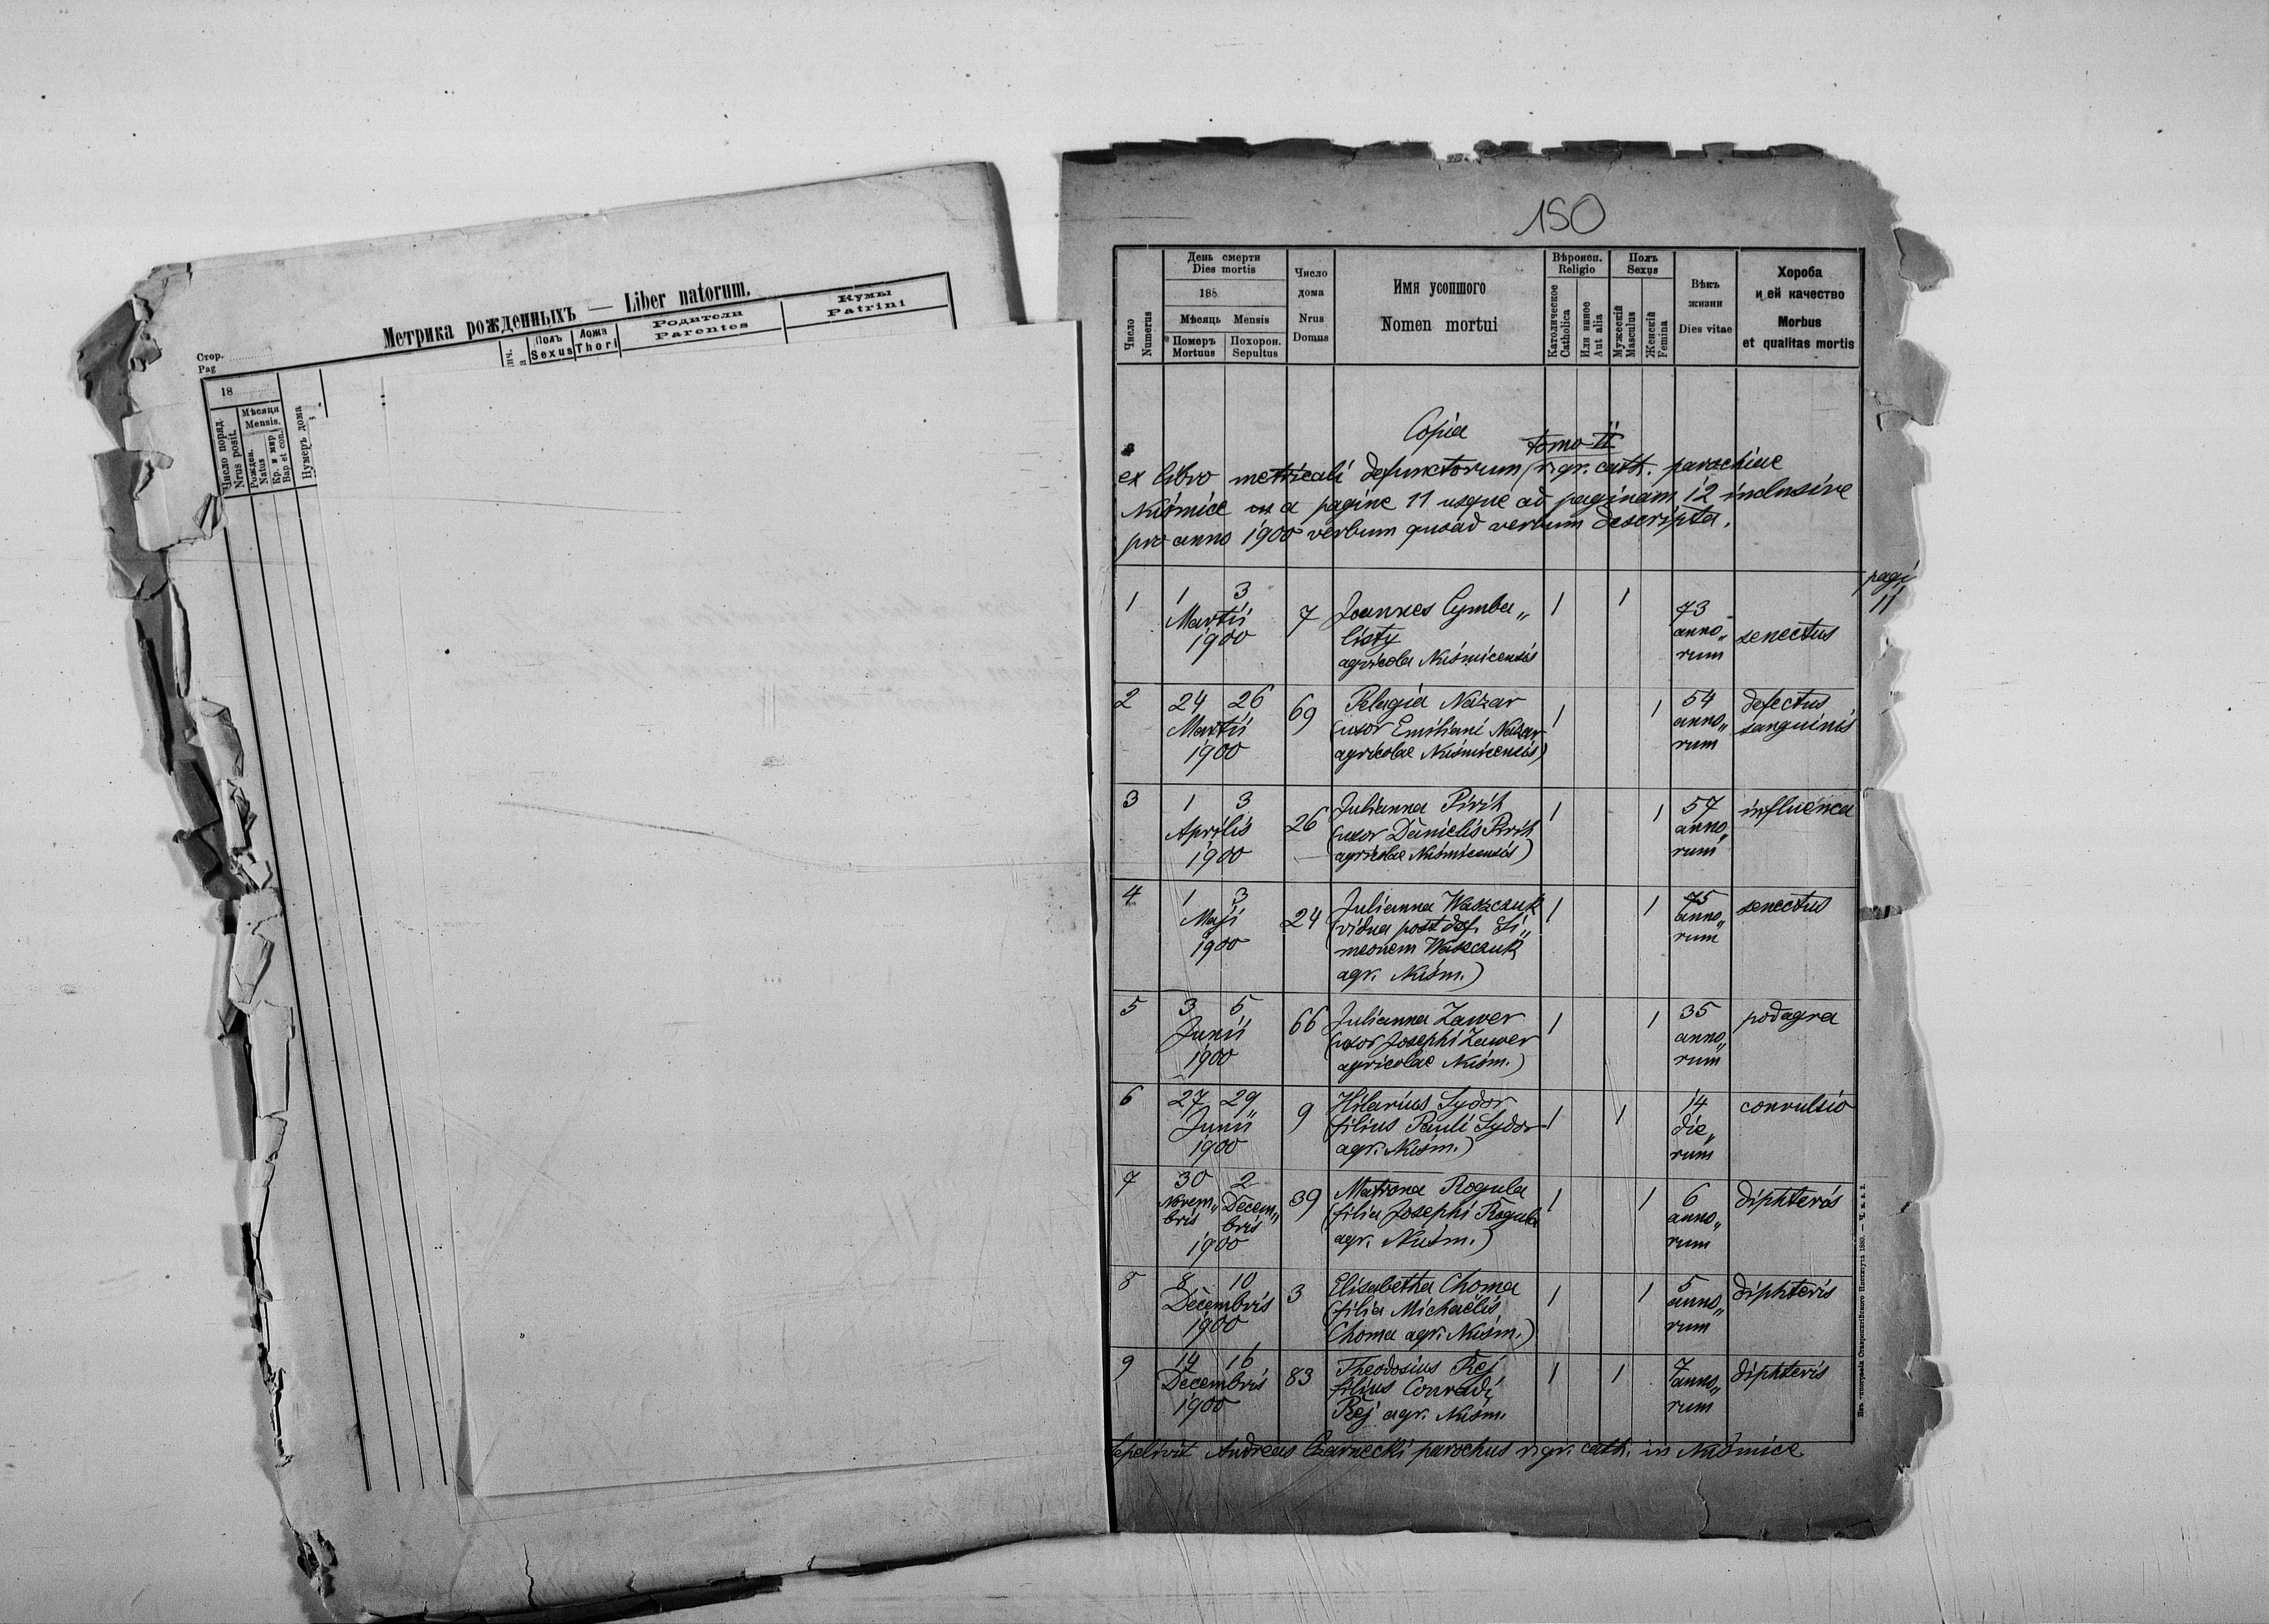 Метрика рожденныхъ — Liber natorum.
Стор.
Pag
18
Мѣсяця
Mensis.
Число поряд.
Nrus posit.
Рожден.
Natus
Кр. и мѵр
Bap et con.
Нумеръ дома
Полъ
Sexus
Ложа
Thori
Родители
Parentes
Кумы
Patrini
150
Число
Numerus
День смерти
Dies mortis
188
Мѣсяць Mensis
Померъ
Mortuus
Похорон.
Sepultus
Число
дома
Nrus
Domus
Имя усопшого
Nomen mortui
Вѣроисп.
Religio
Католическое
Catholica
Или инное
Aut alia
Полъ
Sexus
Мужескій
Masculus
Женскій
Femina
Вѣкъ
жизни
Dies vitae
Хороба
и ей качество
Morbus
et qualitas mortis
Copia
tomo II
ex libro metricali defunctorum r. gr. cath. parochiae
Nuśmice a pagine 11 usque ad paginam 12 inclusive
pro anno 1900 verbum quoad verbum descripta.
pag
11
1 1 3 7 Joannes Cymba„ 1 1 73
Martii listy anno„ senectus
1900 agricola Nuśmicensis rum
2 24 26 69 Pelagia Nazar 1 1 54 defectus
Martii (uxor Emiliani Nazar anno„ sanguinis
1900 agricolae Nuśmicensis) rum
3 1 3 26 Julianna Pirih 1 1 57 influenca
Aprilis (uxor Danielis Pirih anno„
1900 agricolae Nuśmicensis) rum
4 1 3 24 Julianna Waszczuk 1 1 75 senectus
Maji (vidua post def. Si„ anno„
1900 meonem Waszczuk rum
agr. Nuśm.)
5 3 5 66 Julianna Zawer 1 1 35 podagra
Junii (uxor Josephi Zawer anno„
1900 agricolae Nuśm.) rum
6 27 29 9 Hilarius Sydor 1 1 14 convulsio
Junii (filius Pauli Sydor die„
1900 agr. Nuśm.) rum
7 30 2 39 Matrona Rogula 1 1 6 diphteris
Novem„ Decem„ (filia Josephi Rogula anno„
bris bris agr. Nuśm.) rum
1900
8 8 10 3 Elisabetha Choma 1 1 5 diphteris
Decembris (filia Michaëlis anno„
1900 Choma agr. Nuśm.) rum
9 14 16 83 Theodosius Rej 1 1 7 diphteris
Decembris filius Conradi anno„
1900 Rej agr. Nuśm. rum
Sepelivit Andreas Czarnecki parochus r. gr. cath. in Nuśmice